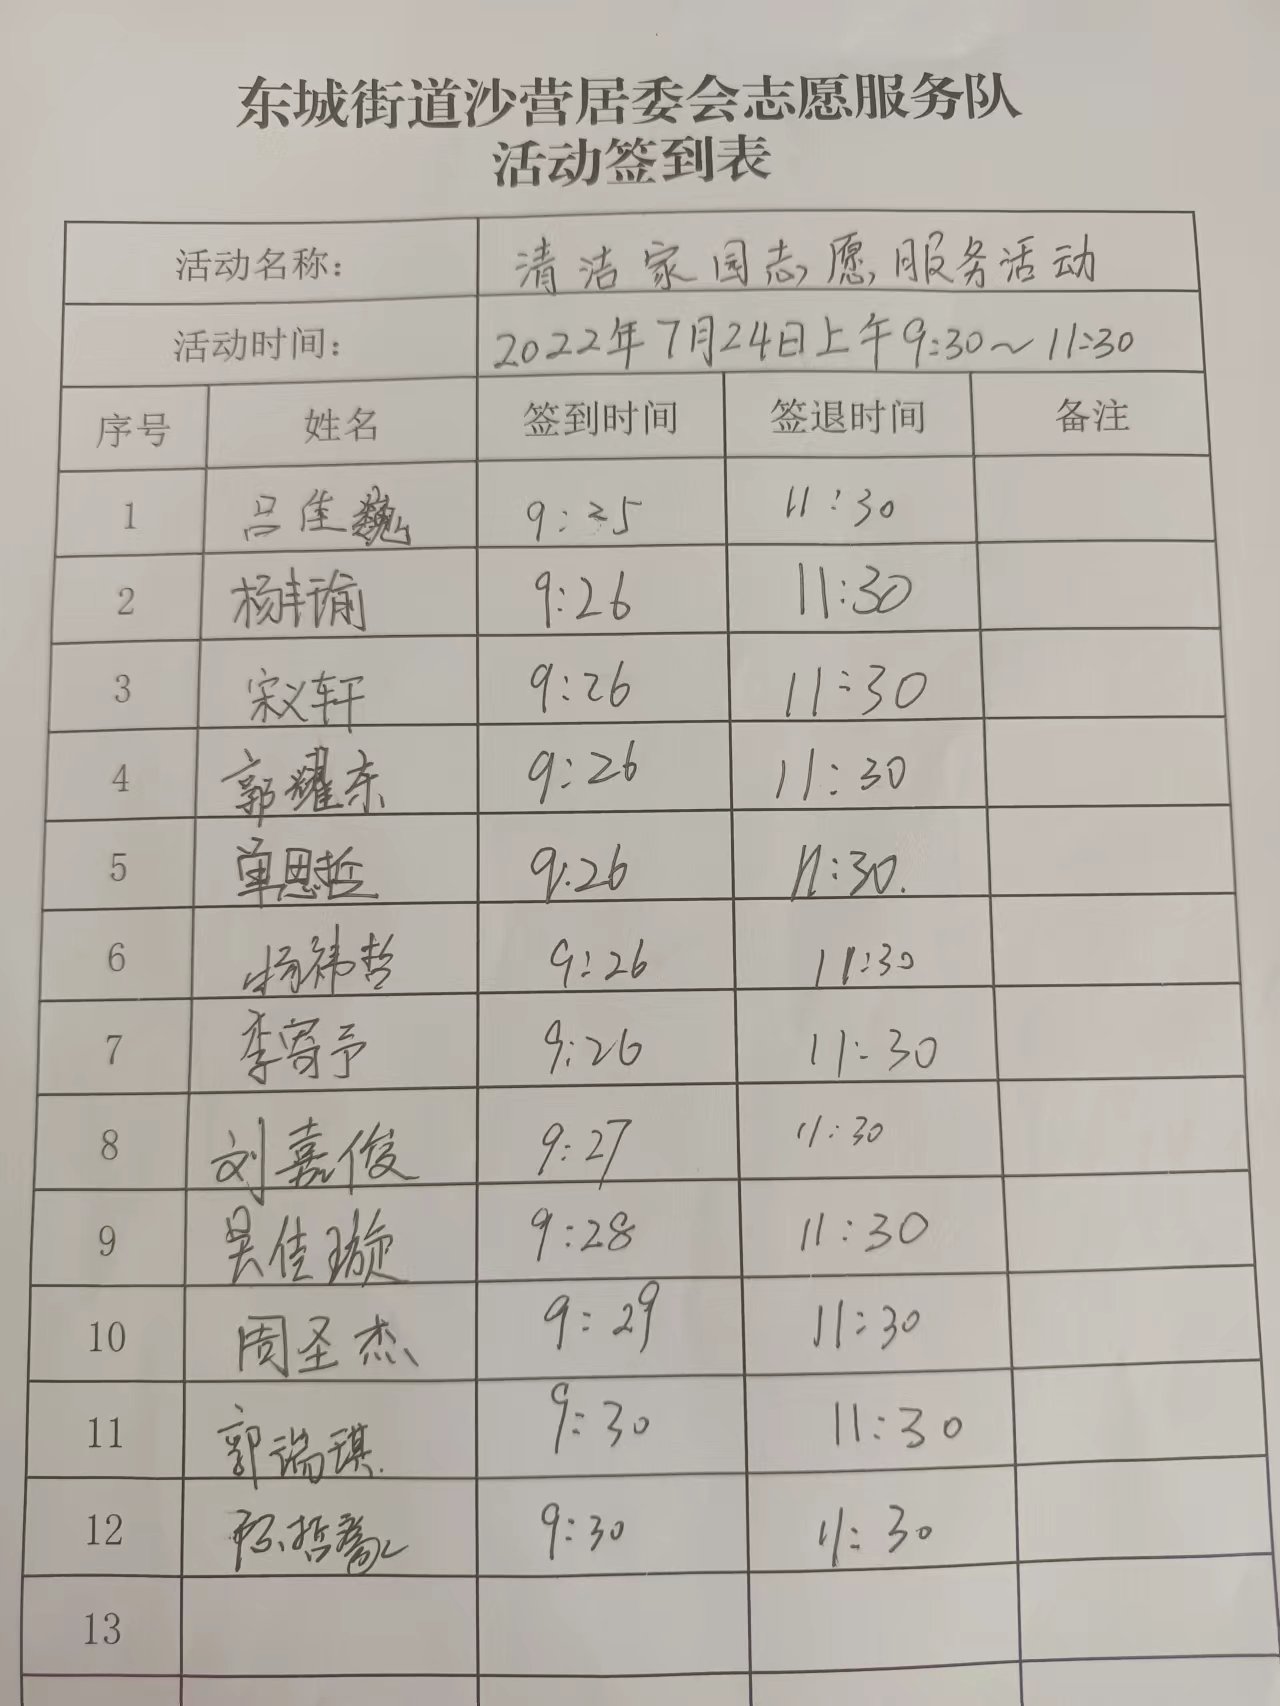 东城街道沙营居委会志愿服务队
活动签到表
活动名称： 清洁家园志愿服务活动
活动时间： 2022年7月24日上午9:30～11:30
序号 姓名 签到时间 签退时间 备注
1 吕佳巍 9:25 11:30
2 杨丰瑜 9:26 11:30
3 宋义轩 9:26 11:30
4 郭耀东 9:26 11:30
5 单恩哲 9:26 11:30.
6 杨祎哲 9:26 11:30
7 李寄予 9:26 11:30
8 刘嘉俊 9:27 11:30
9 吴佳璇 9:28 11:30
10 周圣杰 9:29 11:30
11 郭瑞琪 9:30 11:30
12 9:30 11:30
13